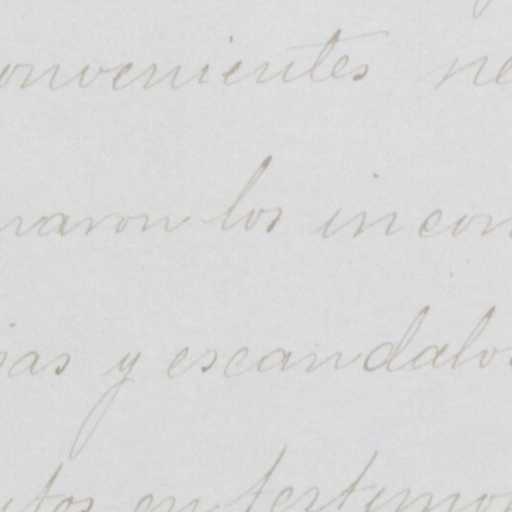 onvenientes ne
naron los incon
ias y escandalos
tos en testimo